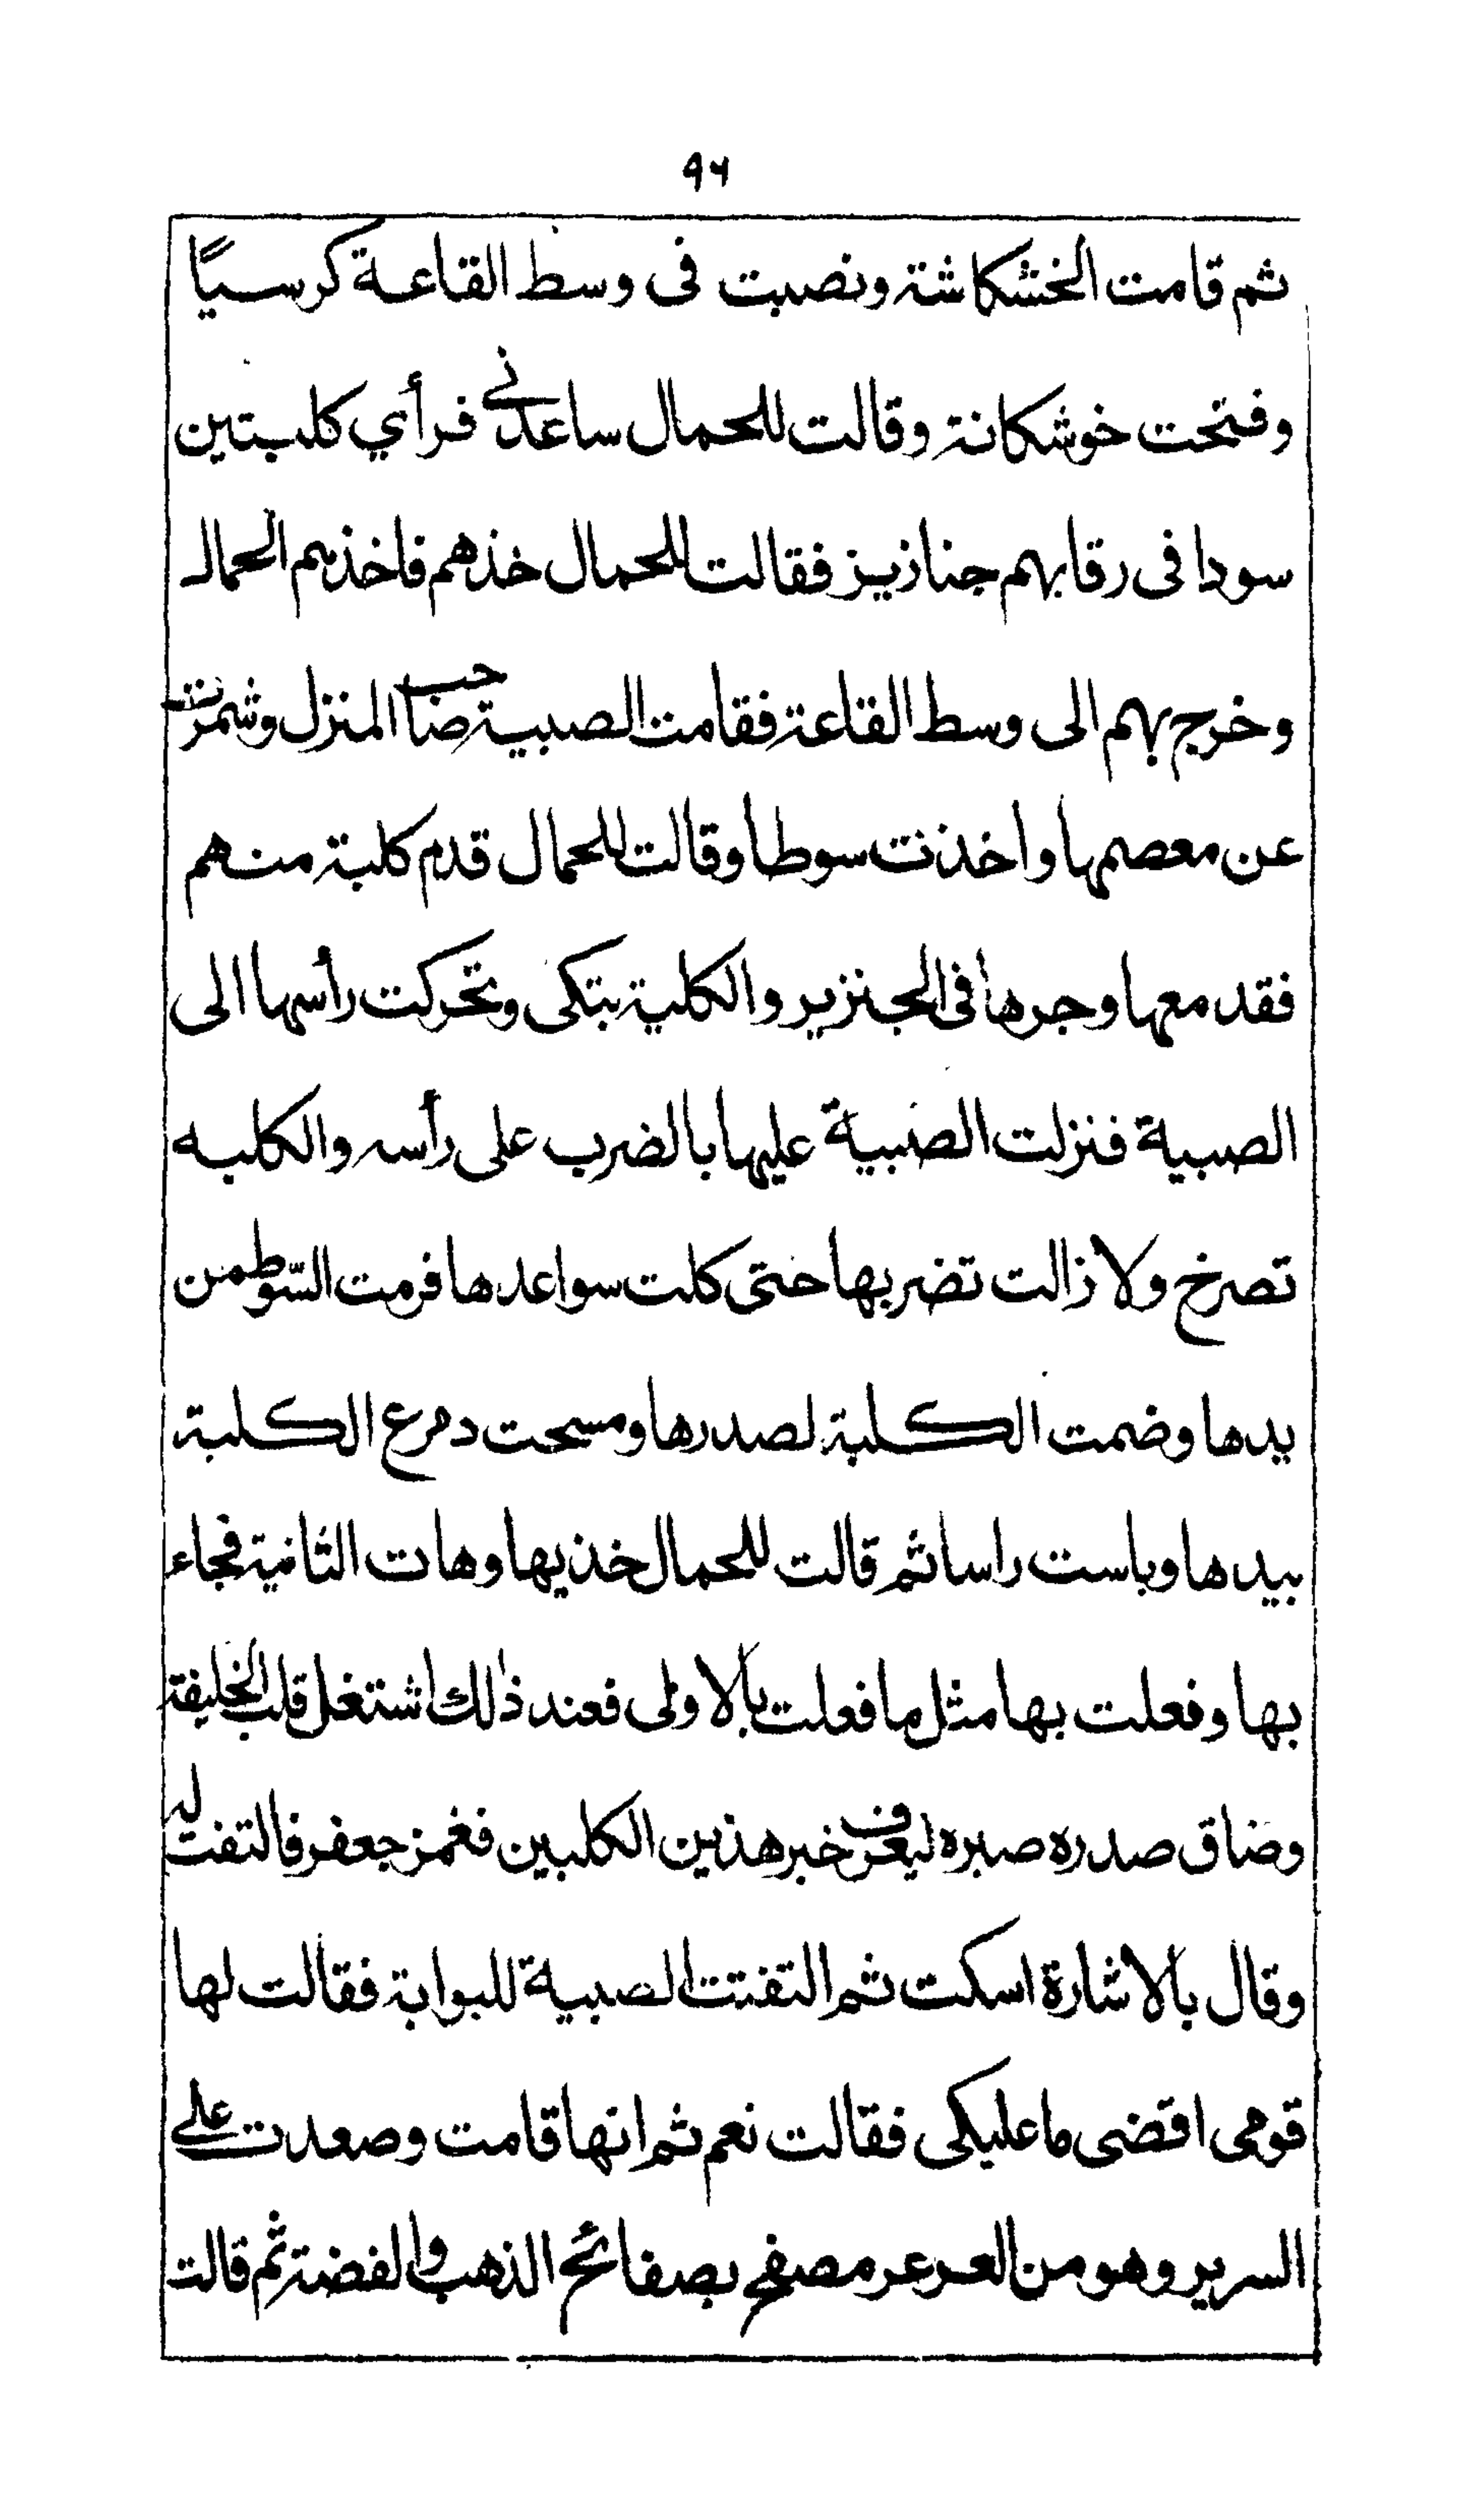 ٩٢
ثم قامت الخشكاشة ونصبت فى وسط القاعة كرسيًا
وفتحت خوشكانة وقالت للحمال ساعدنى فرأي كلبتين
سودا فى رقابهم جنازيز فقالت للحمال خذهم فاخذهم الحمال
وخرج بهم الى وسط القاعة فقامت الصبية صاحب المنزل وشمرت
عن معصمها واخذت سوطا وقالت للحمال قدم كلبة منهم
فقد معها وجرها فى الجنزير والكلبة تبتكى وتحركت رأسها الى
الصبية فنزلت الصبية عليها بالضرب على رأسه والكلبه
تصرخ ولا زالت تضربها حتى كلت سواعدها فرمت السّوط من
يدها وضمت الكلبة لصدرها ومسحت دمرع الكلبة
بيدها وباست راسا ثم قالت للحمال خذيها وهات الثانية فجاء
بها وفعلت بها مثل ما فعلت بالاولى فعند ذالك اشتغل قلب الخليفة
وضاق صدره صبره ليعرف خبر هذين الكلبين فغمز جعفر فالتفت له
وقال بالاشارة اسكت ثم التفتت الصبية للبوابة فقالت لها
قومى اقضى ما عليكى فقالت نعم ثم انها قامت وصعدت على
السرير وهو من العرعر مصفح بصفائح الذهب والفضة ثم قالت